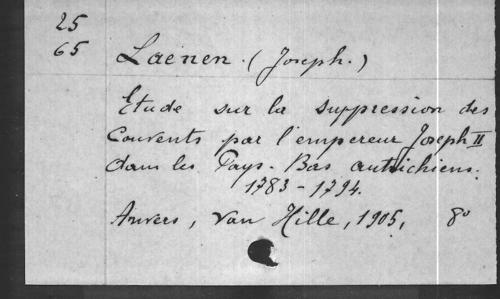 25
65
Laenen. (Joseph.)
Etude sur la suppression des
Couvents par l'empereur Joseph II
dans les Pays-Bas autrichiens.
1783-1794.
Anvers, Van Hille, 1905, 8°